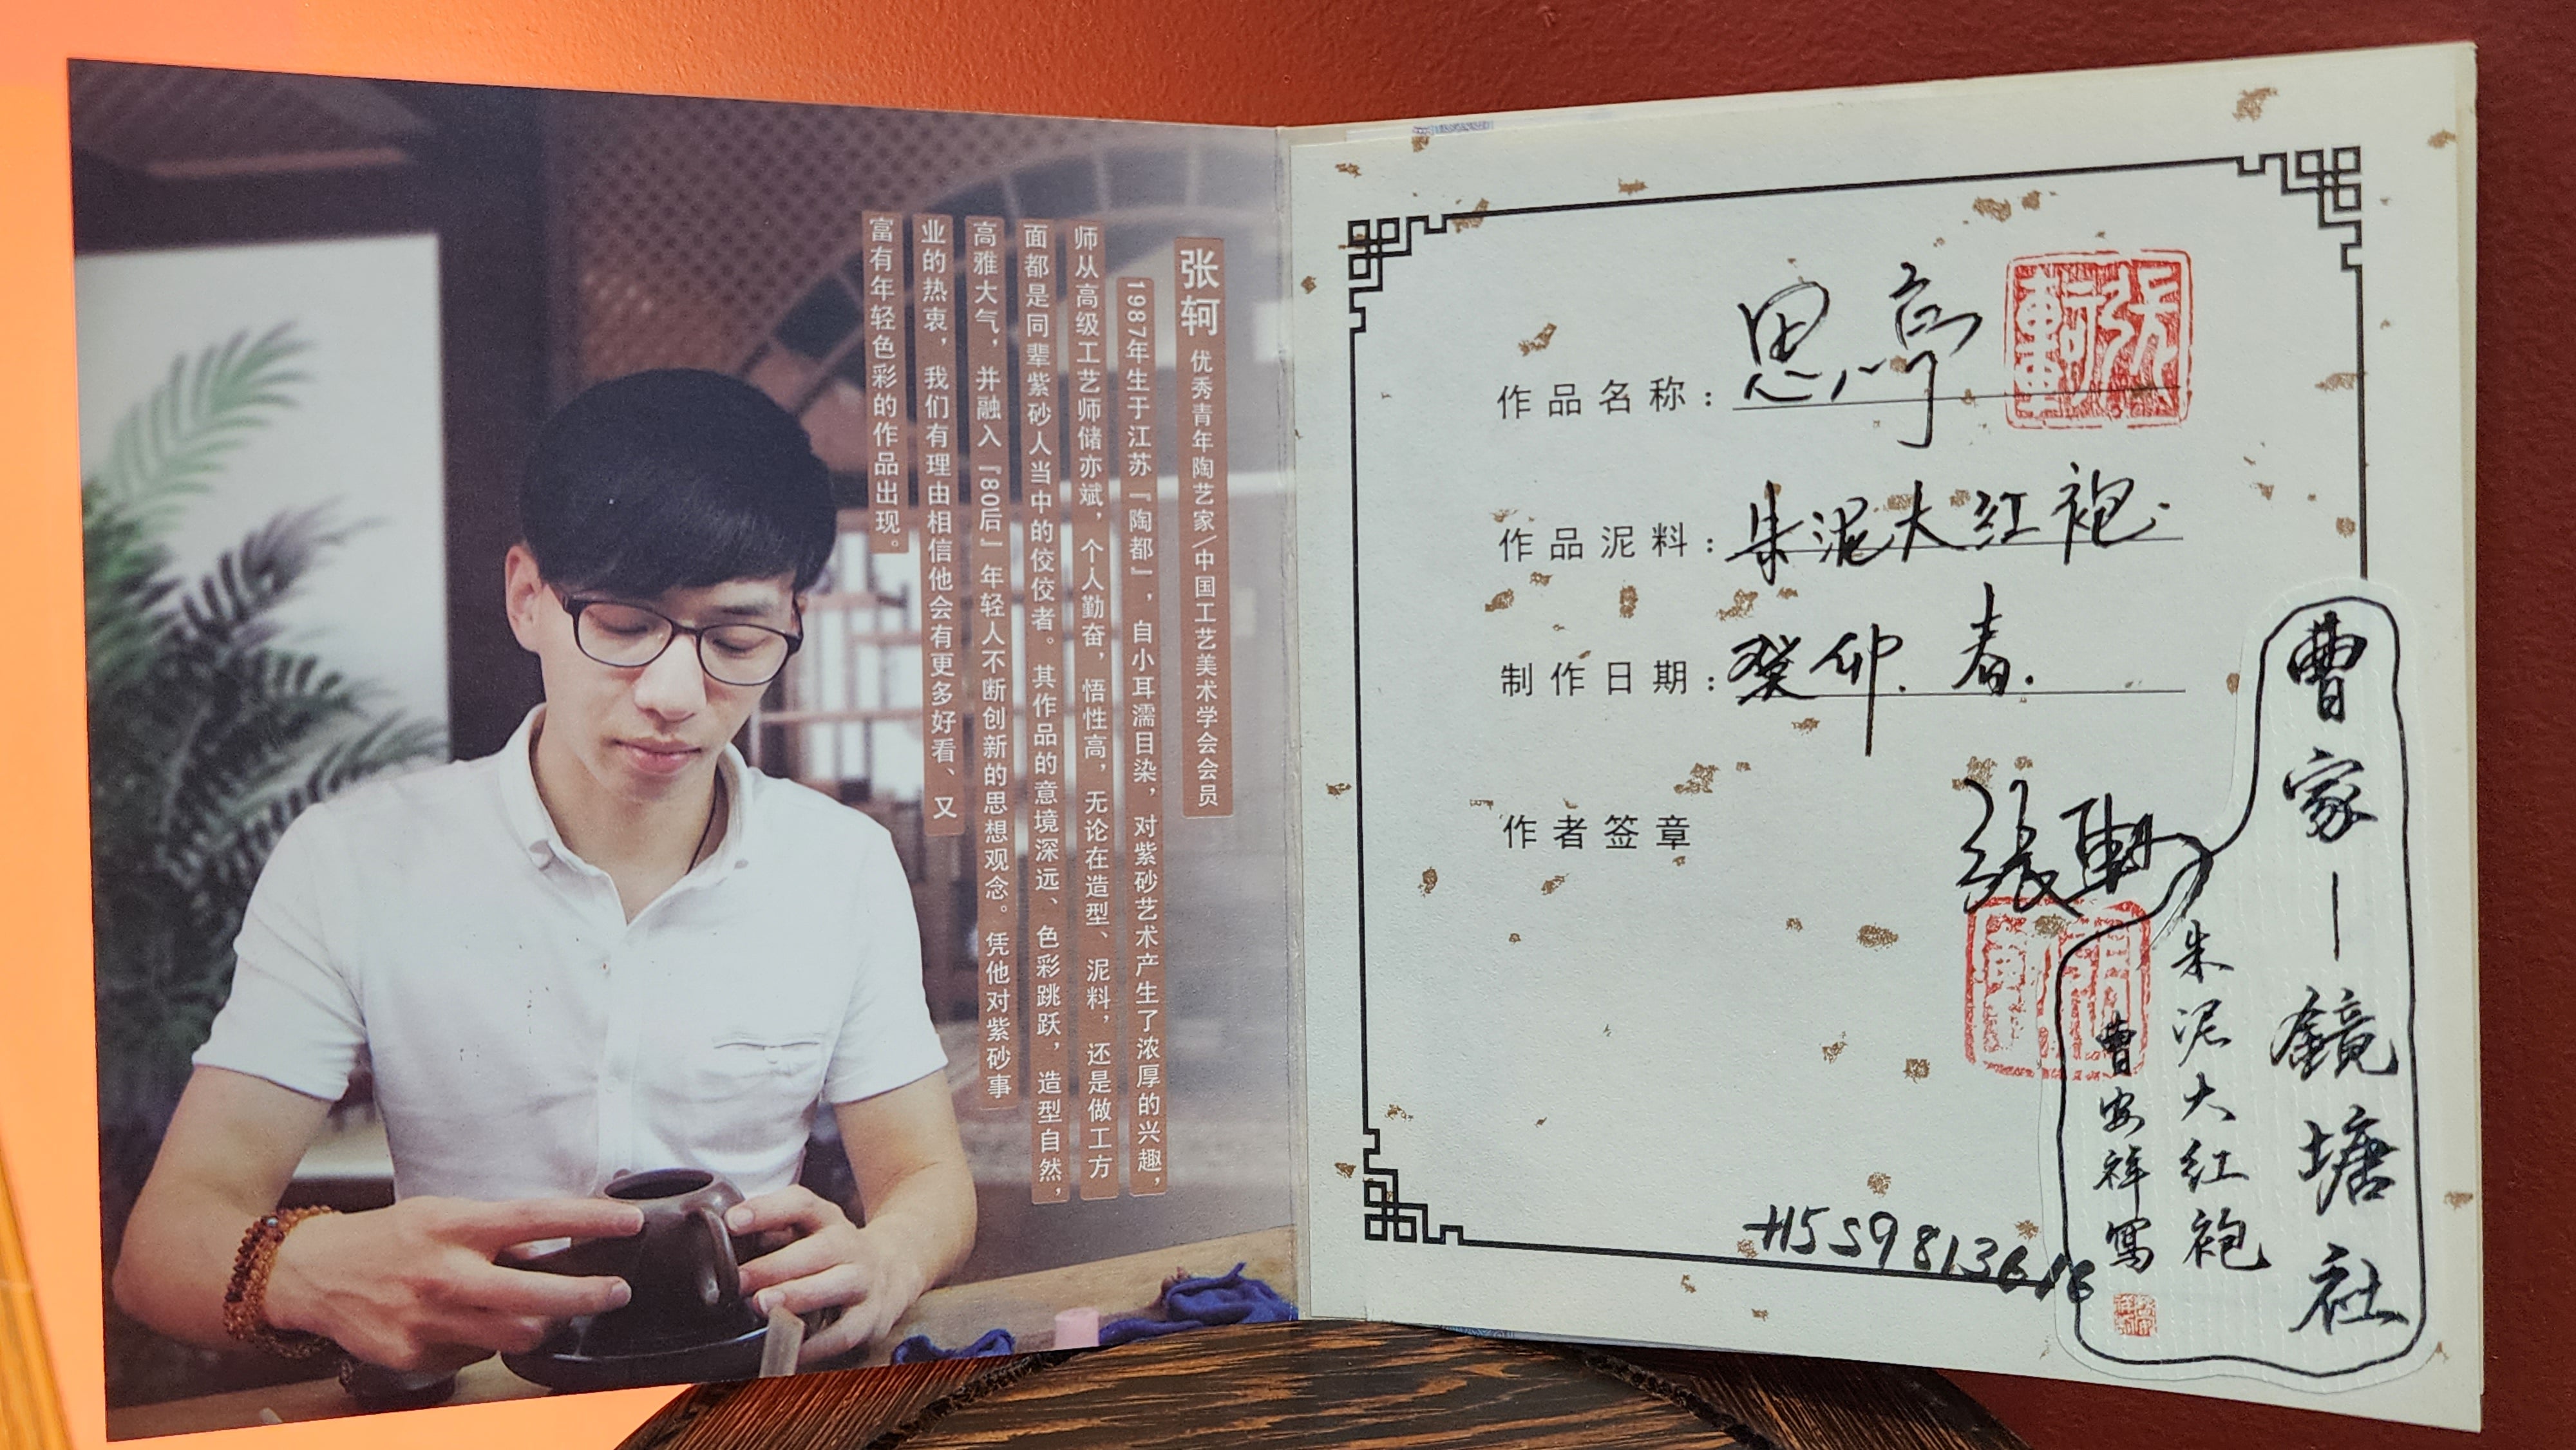 张轲 优秀青年陶艺家\中国工艺美术学会会员
1987年生于江苏『陶都』，自小耳濡目染，对紫砂艺术产生了浓厚的兴趣，
师从高级工艺师储亦斌，个人勤奋，悟性高，无论在造型、泥料，还是做工方
面都是同辈紫砂人当中的佼佼者。其作品的意境深远、色彩跳跃，造型自然，
高雅大气，并融入『80后』年轻人不断创新的思想观念。凭他对紫砂事
业的热衷，我们有理由相信他会有更多好看、又
富有年轻色彩的作品出现。
作品名称：思亭
作品泥料：朱泥大红袍
制作日期：癸卯.春.
作者签章
張軻
曹家—鏡塘社
朱泥大红袍
曹安祥寫